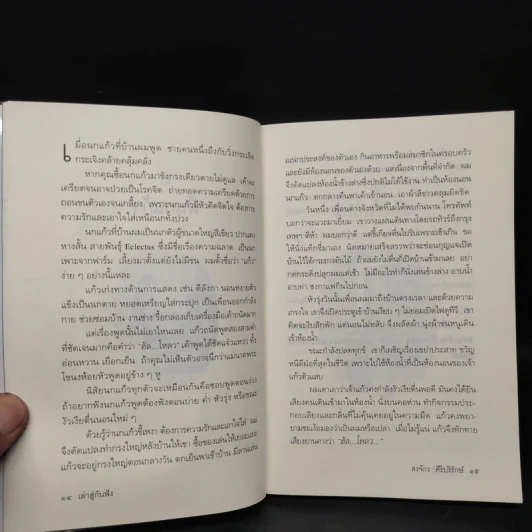 เมื่อนกแก้วที่บ้านผมพูด ชายคนหนึ่งถึงกับวิ่งกระเจิด
กระเจิงคล้ายคลุ้มคลั่ง
หากคุณซื้อนกแก้วมาขังกรงเดียวดายไม่ดูแล เค้าจะ
เครียดจนอาจป่วยเป็นโรคจิต ถ่ายทอดความเครียดด้วยการ
ถอนขนตัวเองจนเกลี้ยง เพราะนกแก้วมีหัวคิดจิตใจ ต้องการ
ความรักและเอาใจใส่เหมือนกทั้งปวง
นกแก้วที่บ้านผมเป็นนกตัวผู้ขนาดใหญ่สีเขียว ปากแดง
หางสั้น สายพันธุ์ Eclectus ซึ่งมีชื่อเรื่องความฉลาด เป็นนก
เพาะจากฟาร์ม เลี้ยงมาตั้งแต่ยังไม่มีขน ผมตั้งชื่อว่า "แก้ว"
ง่าย ๆ อย่างนี้แหละ
แก้วเก่งทางด้านการแสดง เช่น ตีลังกา นอนหงายตัว
แข็งเป็นนกตาย หยอดเหรียญใส่กระปุก เป็นเพื่อนออกกำลัง
กาย ช่วยซ่อมบ้าน งานช่าง รื้อกล่องเก็บเครื่องมือเค้าถนัดมาก
แต่เรื่องพูดนั้นไม่เอาไหนเลย แก้วถนัดพูดสองสามคำ
ที่ชัดเจนมากคือคำว่า "ฮัล...โหลว" เค้าพูดได้ชัดแจ๋วแหวว ทั้ง
อ่อนหวาน เยือกเย็น ถ้าคุณไม่เห็นตัวอาจนึกว่าแม่นาคพระ
โขนงห้อยหัวพูดอยู่ข้าง ๆ หู
นิสัยนกแก้วทุกตัวจะเหมือนกันคือชอบพูดตอนง่วง
ถ้าอยากฟังนกแก้วพูดต้องฟังตอนบ่าย ค่ำ หัวรุ่ง หรือขณะ
งัวเงียตื่นนอนใหม่ ๆ
ด้วยรู้ว่านกแก้วขี้เหงา ต้องการความรักและเอาใจใส่ ผม
จึงดัดแปลงทำกรงใหญ่หลังบ้านให้เขา ซื้อของเล่นให้เยอะแยะ
แก้วจะอยู่กรงใหญ่ตอนกลางวัน ตกเย็นพาเข้าบ้าน มีลานเล่น
๑๔ เล่าสู่กันฟัง
อเนกประสงค์ของตัวเอง กินอาหารพร้อมสมาชิกในครอบครัว
และยังมีห้องนอนของตัวเองด้วย แต่เนื่องจากพื้นที่จำกัด ผม
จึงดัดแปลงห้องน้ำข้างล่างซึ่งปกติไม่ได้ใช้งาน ทำเป็นห้องนอน
นกแก้ว ตกกลางคืนพาเค้าเข้านอน เอาผ้าสีขาวคลุมมิดชิด
วันหนึ่ง เพื่อนต่างจังหวัดที่ไม่ได้พบกันนาน โทรศัพท์
บอกว่าจะแวะมาเยี่ยม เขาวางแผนเดินทางโดยรถทัวร์ถึงกรุง
เทพฯ ตีห้า ผมบอกว่าดี แต่ขี้เกียจตื่นไปรับเพราะเช้าเกิน ขอ
ให้นั่งแท็กซี่มาเอง นัดหมายเสร็จสรรพว่าจะซ่อนกุญแจเปิด
บ้านไว้ใต้กระถางต้นไม้ ถ้าผมยังไม่ตื่นก็เปิดบ้านเข้ามาเลย อย่า
กดกระดิ่งปลุกผมแต่เช้า ไม่มีอะไรทำก็นั่งเล่นข้างล่าง อาบน้ำ
อาบท่า ชงกาแฟกินไปก่อน
หัวรุ่งวันนั้นเพื่อนผมมาถึงบ้านตรงเวลา และด้วยความ
เกรงใจ เขาจึงเปิดประตูเข้าบ้านเงียบ ๆ ไม่ยอมเปิดไฟดูทีวี เขา
คิดจะงีบสักพัก แต่นอนไม่หลับ จึงผลัดผ้า นุ่งผ้าขนหนูเดิน
เร็วห้องน้ำ
ขณะกำลังปลดทุกข์ เขาก็เผชิญเรื่องเขย่าประสาท ขวัญ
หนีดีฝ่อที่สุดในชีวิต เพราะไปใช้ห้องน้ำที่เป็นห้องนอนของเจ้า
แก้วตัวแสบ
ผมเดาเอาว่าเจ้าแก้วคงกำลังงัวเงียตื่นพอดี มันคงได้ยิน
เสียงคนเดินเข้ามาในห้องน้ำ นั่งยองก้นขาว ทำกิจกรรมประ
กอบเสียงและกลิ่นที่ไม่คุ้นเคยอยู่ในความมืด แก้วคงพยา
ยามชะเง้อมองว่าเป็นผมหรือเปล่า เมื่อไม่รู้แน่ แก้วจึงทักทาย
เสียงยานคางว่า "ฮัล...โหลว..."
สงจักร ศิริปริรักษ์ ๑๕